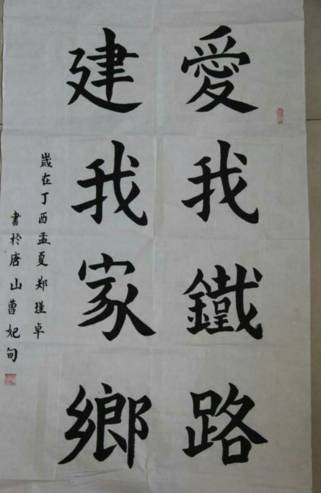 愛我鐵路
建我家鄉
歲在丁酉孟夏郑瑾卓
書於唐山曹妃甸